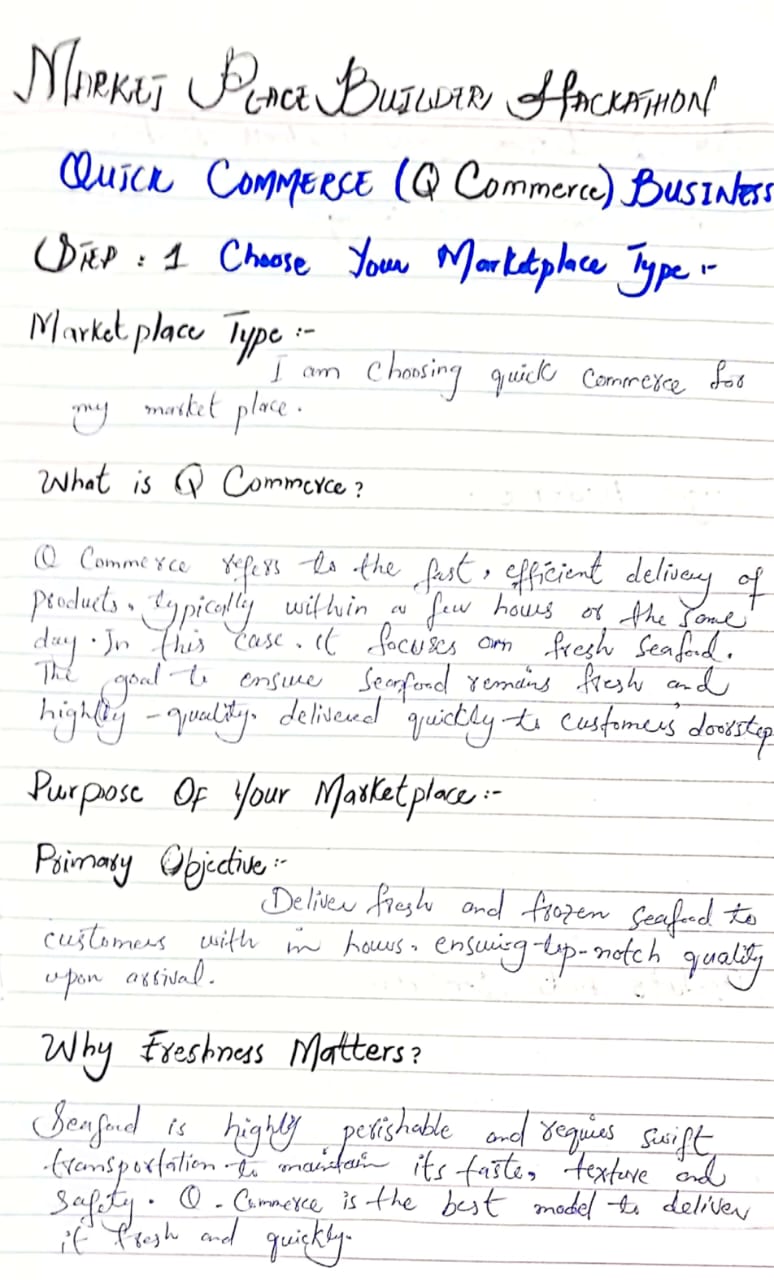 MARKET PLACE BUILDER HACKATHON
QUICK COMMERCE (Q Commerce) BUSINESS
STEP : 1 Choose Your Marketplace Type :-
Marketplace Type :-
I am Choosing quick Commerce for
my market place.
What is Q Commerce?
Q Commerce refers to the fast, efficient delivery of
products, typically within a few hours or the same
day. In this case, it focuses on fresh seafood.
The goal to ensure seafood remains fresh and
highly - quality, delivered quickly to customers' doorstep
Purpose Of Your Marketplace :-
Primary Objective :-
Deliver fresh and frozen seafood to
customers with in hours, ensuring top-notch quality
upon arrival.
Why Freshness Matters?
Seafood is highly perishable and requies swift
transportation to maintain its taste, texture and
safety. Q - Commerce is the best model to deliver
it fresh and quickly.